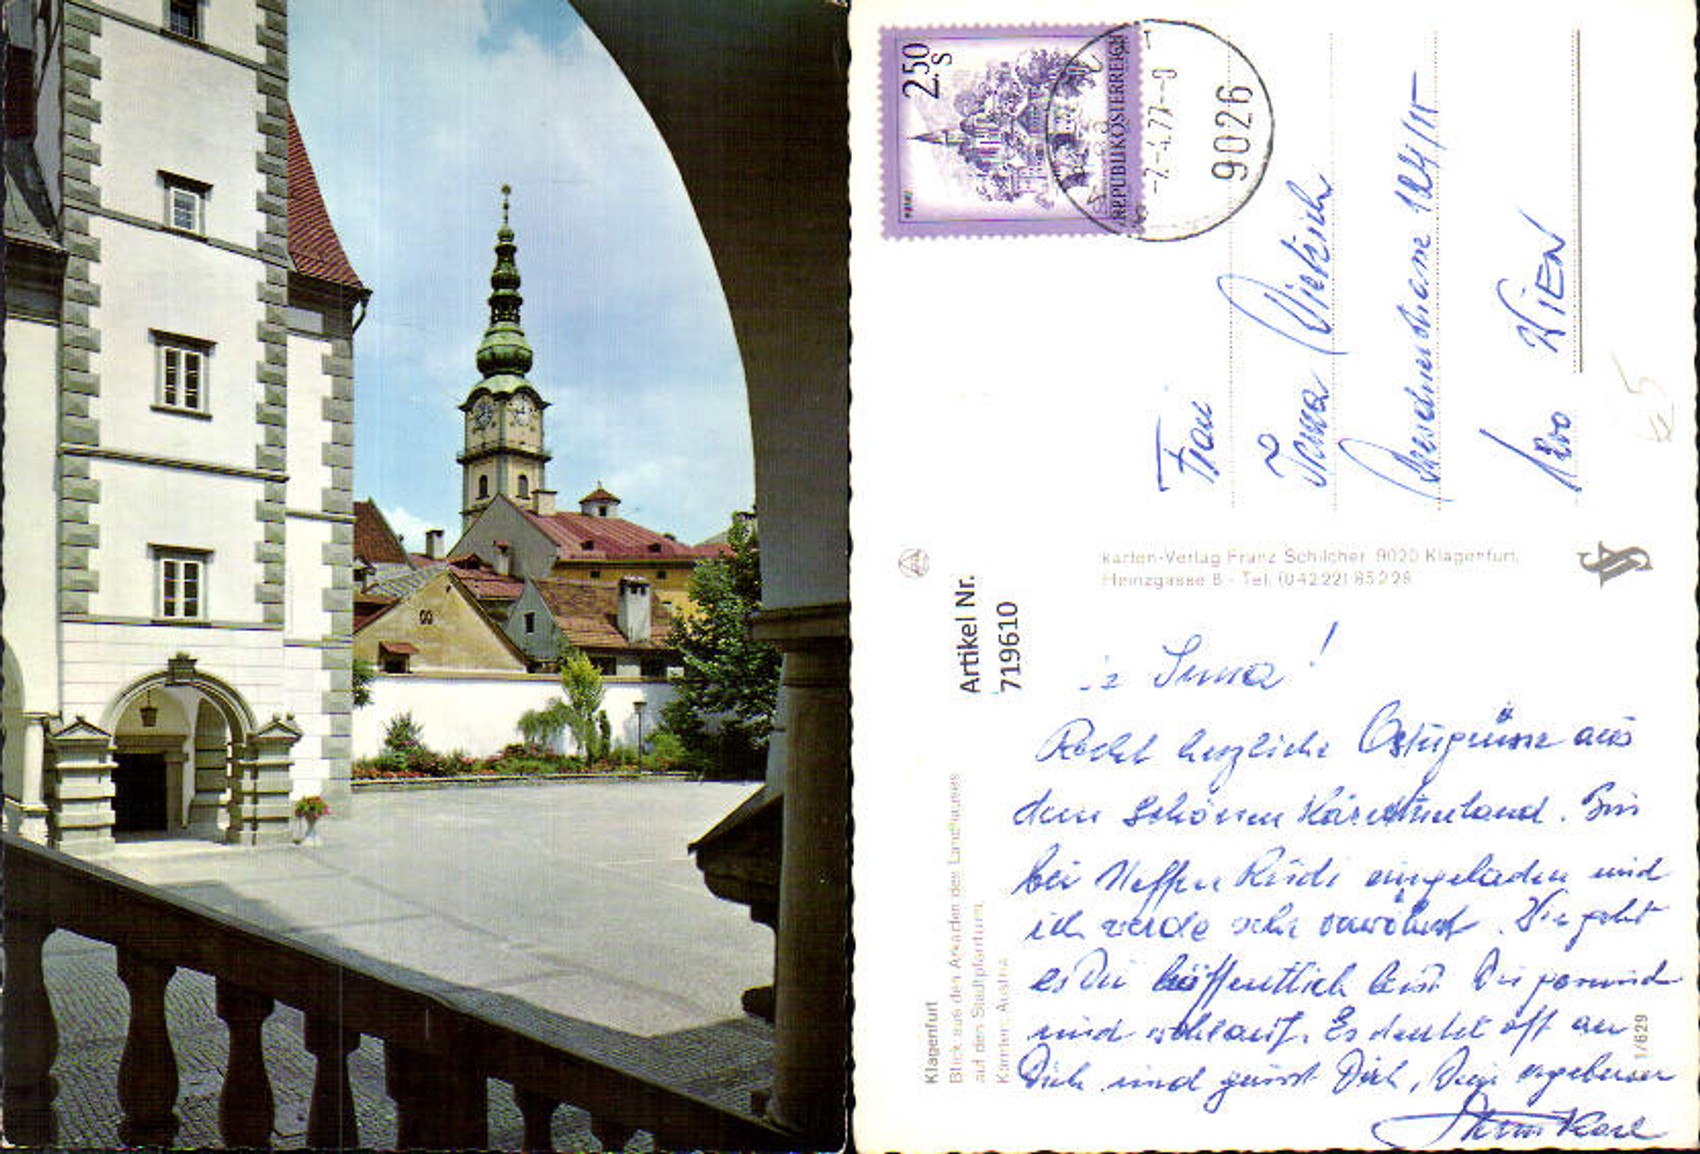 2.50
S
REPUBLIK ÖSTERREICH
-7.-4.77-0
9026
Frau
Irma
1200 WIEN
Karten-Verlag Franz Schilcher, 9020 Klagenfurt,
Heinzgasse 8 - Tel. (04222) 85228
Artikel Nr.
719610
Klagenfurt
Blick aus den Arkaden des Landhauses
auf den Stadtpfarrturm
Kärnten, Austria
1/629
Irma!
Recht herzliche Ostergrüsse aus
dem schönen Kärntnerland. Bin
bei Neffen Rudi eingeladen und
ich werde sehr verwöhnt. Wie geht
es Dir hoffentlich bist Du gesund
und wohlauf. Es denkt oft an
Dich und grüsst Dich, Dein ergebener
Karl